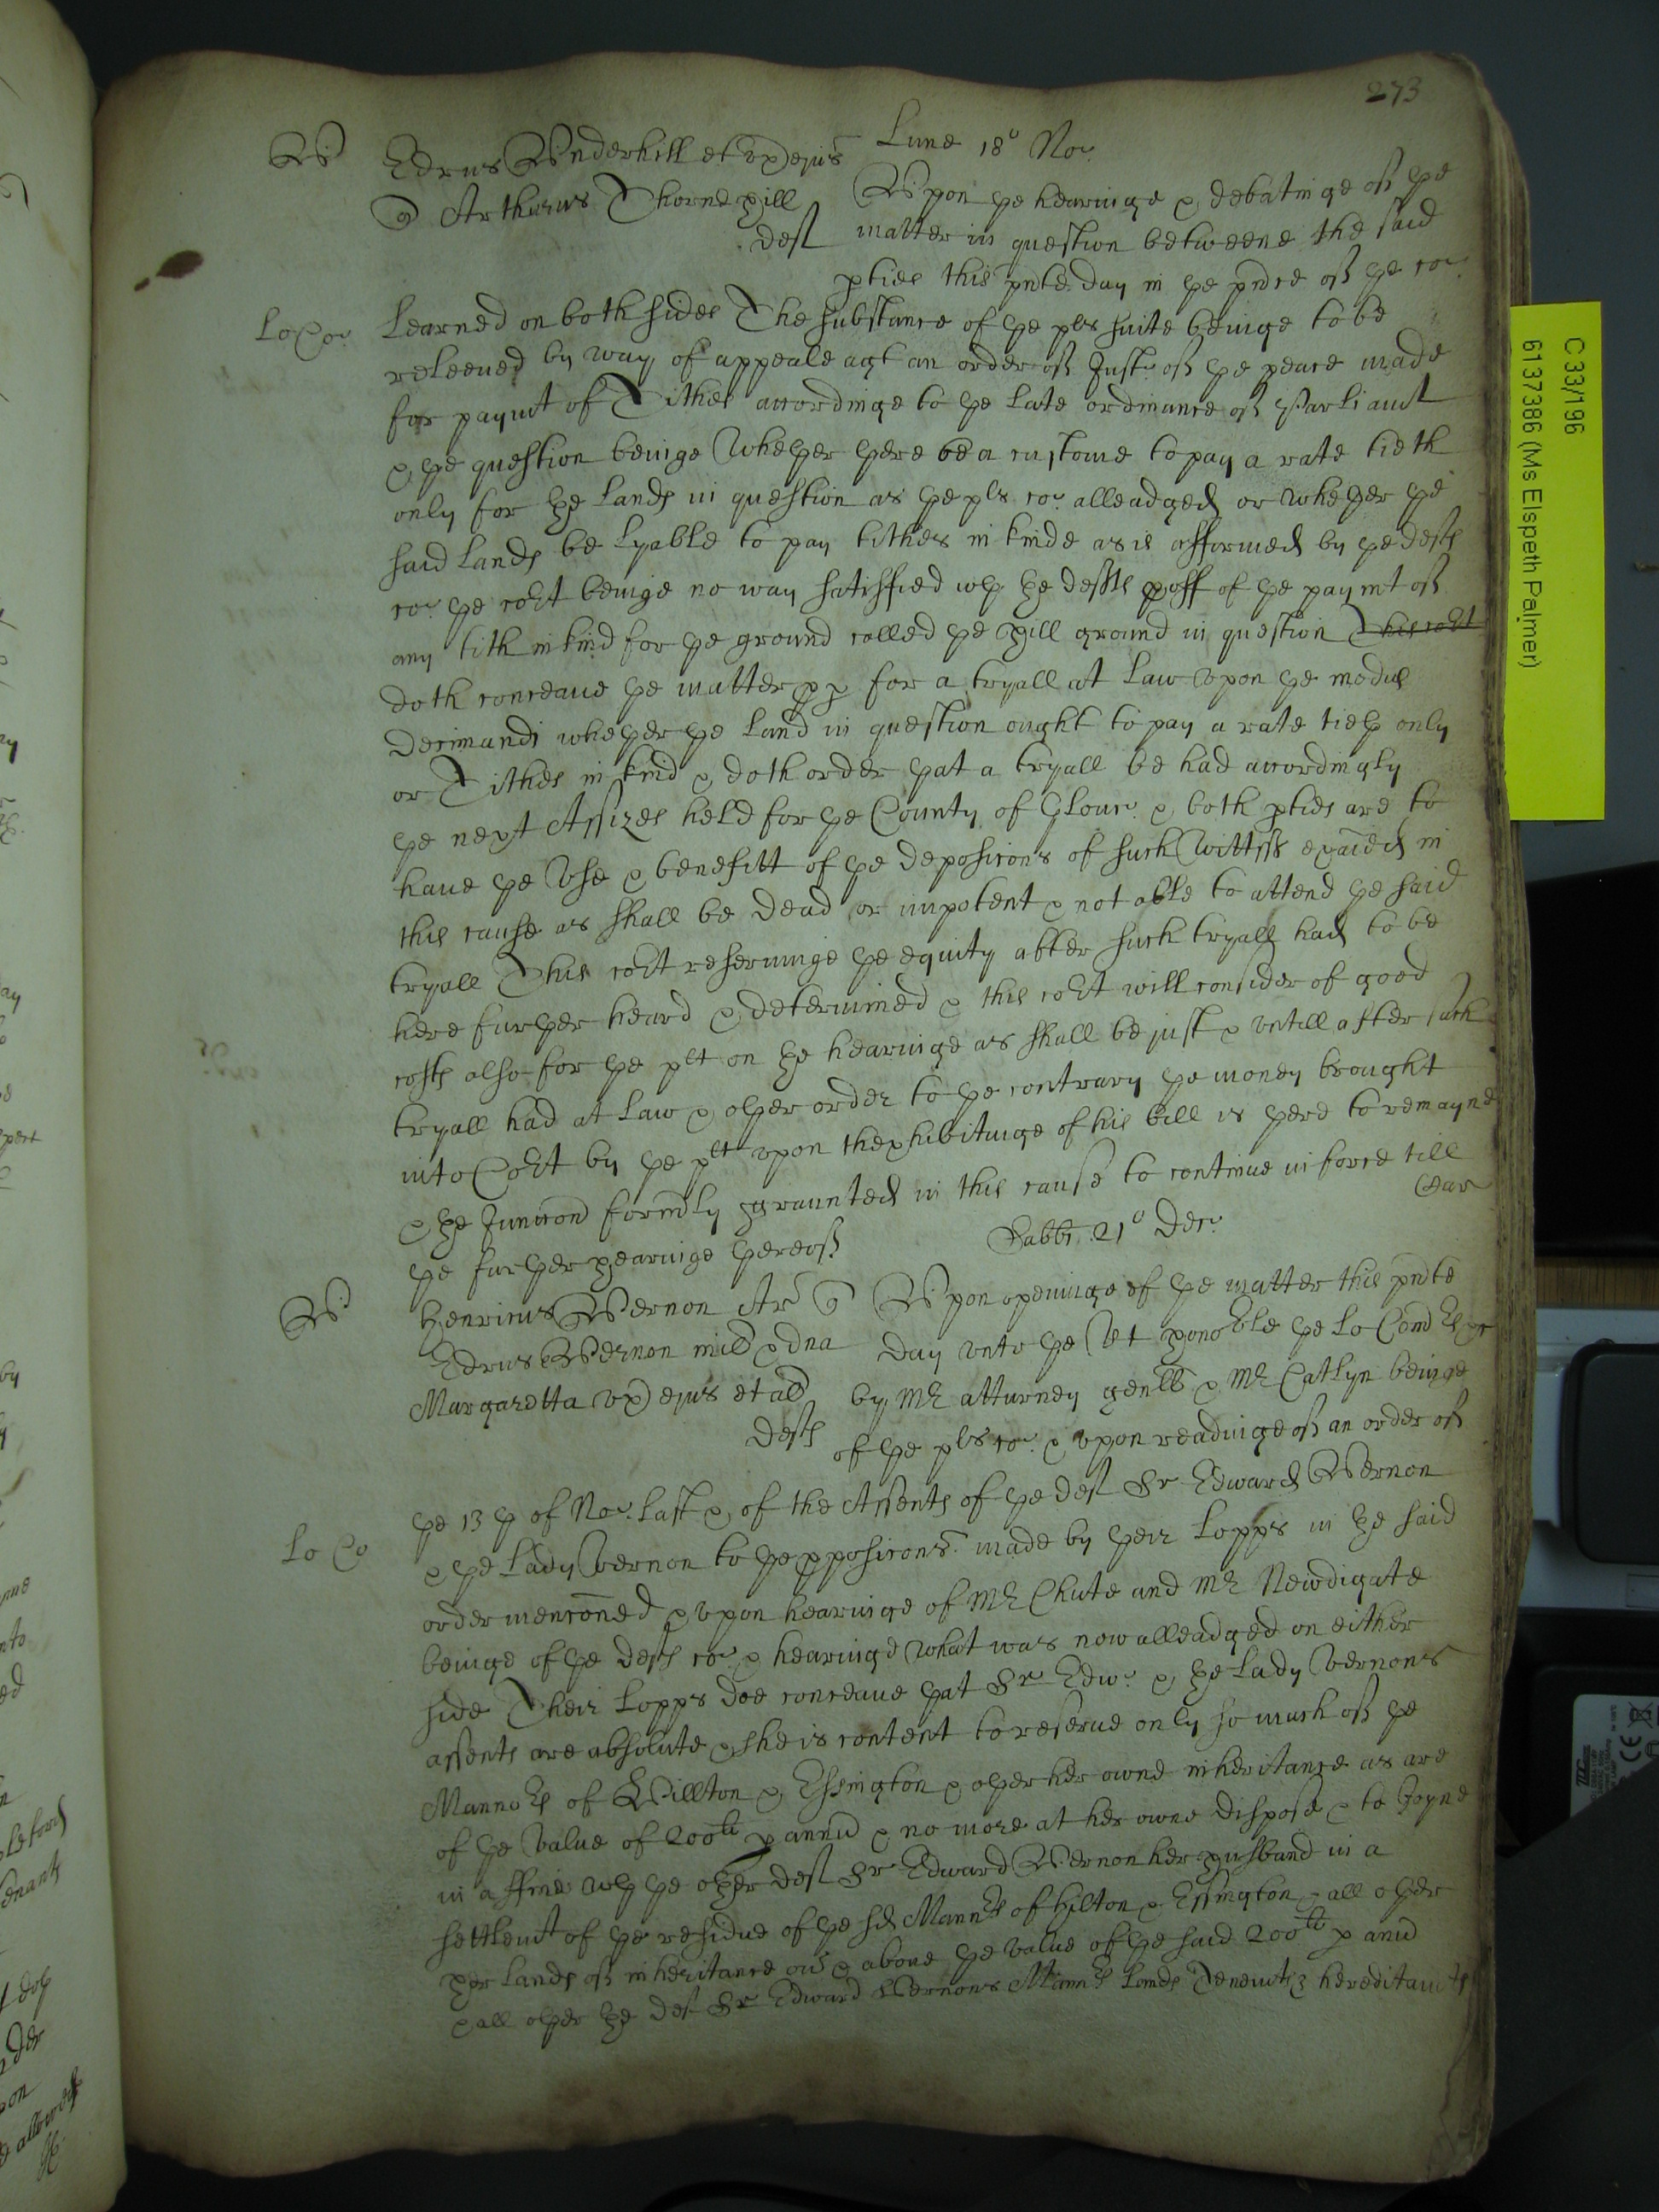 273
Lune 18° Nor
W Edrus Wnderhill et ux ejus
Arthurus Thornehill
Deft
Wpon ye hearinge & debatinge of ye
matter in question betweene the said
pties this pnte day in ye pnce of ye co
Lo Co: Learned on both sides The substance of ye pls suite beinge to be
releeved by way of appeale agt an order of Just: of ye peace made
for paymt of Tithes accordinge to ye late ordinance of Parliamt
& ye question beinge Whether there be a custome to pay a rate tieth
only for the Lands in question as ye pls co: alleadged or whether ye
said Lands be Lyable to pay tithes in kinde as is affirmed by ye defts
co: ye cort beinge no way satisfied wth the defts proff of ye paymt of
any tith in kind for ye ground called ye Hill ground in question This cort
doth conceave ye matter pp for a tryall at Law Vpon ye modus
Decimandi whether ye Land in question ought to pay a rate tieth only
or Tithes in kind & doth order that a tryall be had accordingly
ye next Assizes held for ye County of Glouc: & both pties are to
have ye Vse & benefitt of ye deposicons of such Wittnss exaied in
this cause as shall be Dead or impotent & not able to attend ye said
tryall This cort reservinge ye equity after such tryall had to be
here further heard & determined & this cort will consider of good
costs also for ye plt on the hearinge as shall be just & vntill after such
tryall had at Law & other order to ye contrary ye money brought
into Cort by ye plt vpon thexhibitinge of his bill is there to remayne
& the Junccon formerly graunted in this cause to continue in force till
ye further hearinge thereof
Sabbi 21° Dec:
W Henricus Wernon Ar
Edrus Wernon mil & dna
Margaretta ux ejus et al
Defts
Wpon openinge of ye matter this pnte
Day vnto ye Rt honoble ye Lo Comrs
by Mr atturney genll & Mr Catlyn beinge
of ye pls co: & vpon readinge of an order of
ye 13th of Nor: Last & of the Assents of ye deft Sr Edward Wernon
Lo Co & ye Lady Vernon to ye pposicons made by their Lopps in the said
order mencōned & vpon hearinge of Mr Chute and Mr Newdigate
beinge of ye defts co: & hearinge what was now alleadged on either
side Their Lopps doe conceave that Sr Edw: & the Lady Vernons
assents are absolute & she is content to reserve only so much of ye
Mannors of Hillton & Essington & other her owne inheritance as are
of ye Value of 200li p annu & no more at her owne dispose & to Joyne
in a ffine wth ye other deft Sr Edward Wernon her husband in a
settlemt of ye residue of ye sd Mannrs of Hilton & Essington & all other
her Lands of inheritance ov & above ye value of ye said 200li p anu
& all other the deft Sr Edward Wernons Mannrs Lands Tenemts hereditamts
C 33/196
6137386 (Ms Elspeth Palmer)